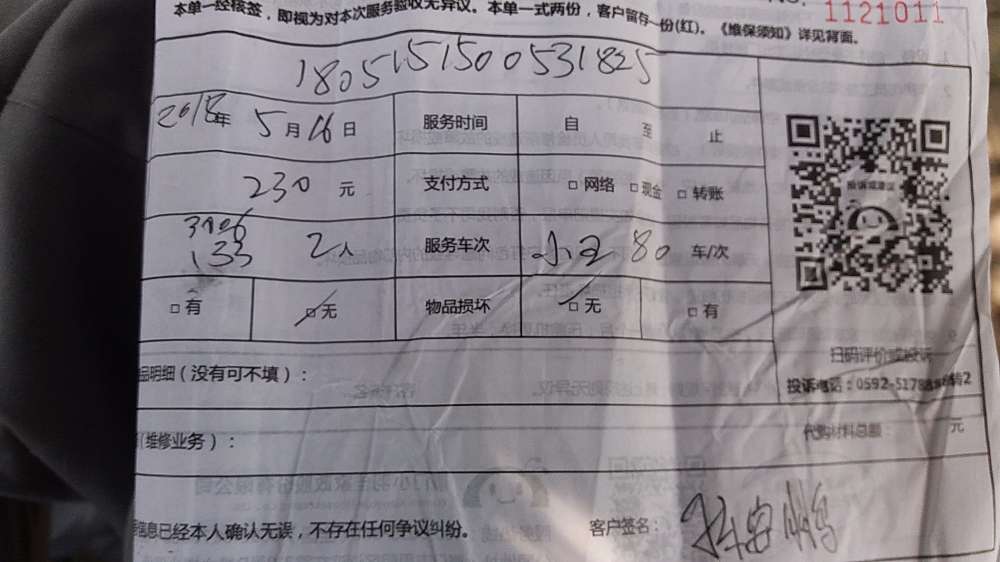 1121011
本单一经核签，即视为对本次服务验收无异议。本单一式两份，客户留存一份(红)。《维保须知》详见背面。
1805151500531825
2018年 5月16日 服务时间 自 至 止
230 元 支付方式 □网络 □现金 □转账
2人 服务车次 80 车/次
133
□有 □无 物品损坏 □无 □有
扫码评价或投诉
品明细（没有可不填）：
投诉电话：0592-5178 转2
(维修业务)： 代购材料总额： 元
信息已经本人确认无误，不存在任何争议纠纷。 客户签名：